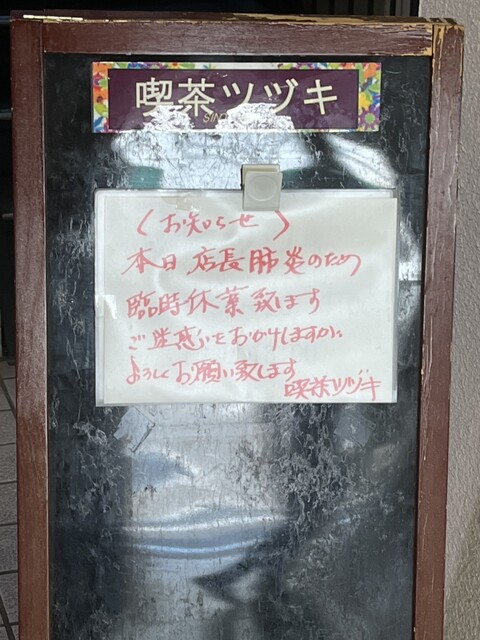 喫茶ツヅキ
〈お知らせ〉
本日 店長肺炎のため
臨時休業致します
ご迷惑をおかけしますが
よろしくお願い致します
喫茶ツヅキ